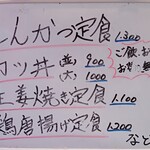 んかつ定食 1,300
カツ丼 (並) 900
(大) 1000
生姜焼き定食 1,100
鶏唐揚げ定食 1,200
ご飯
など